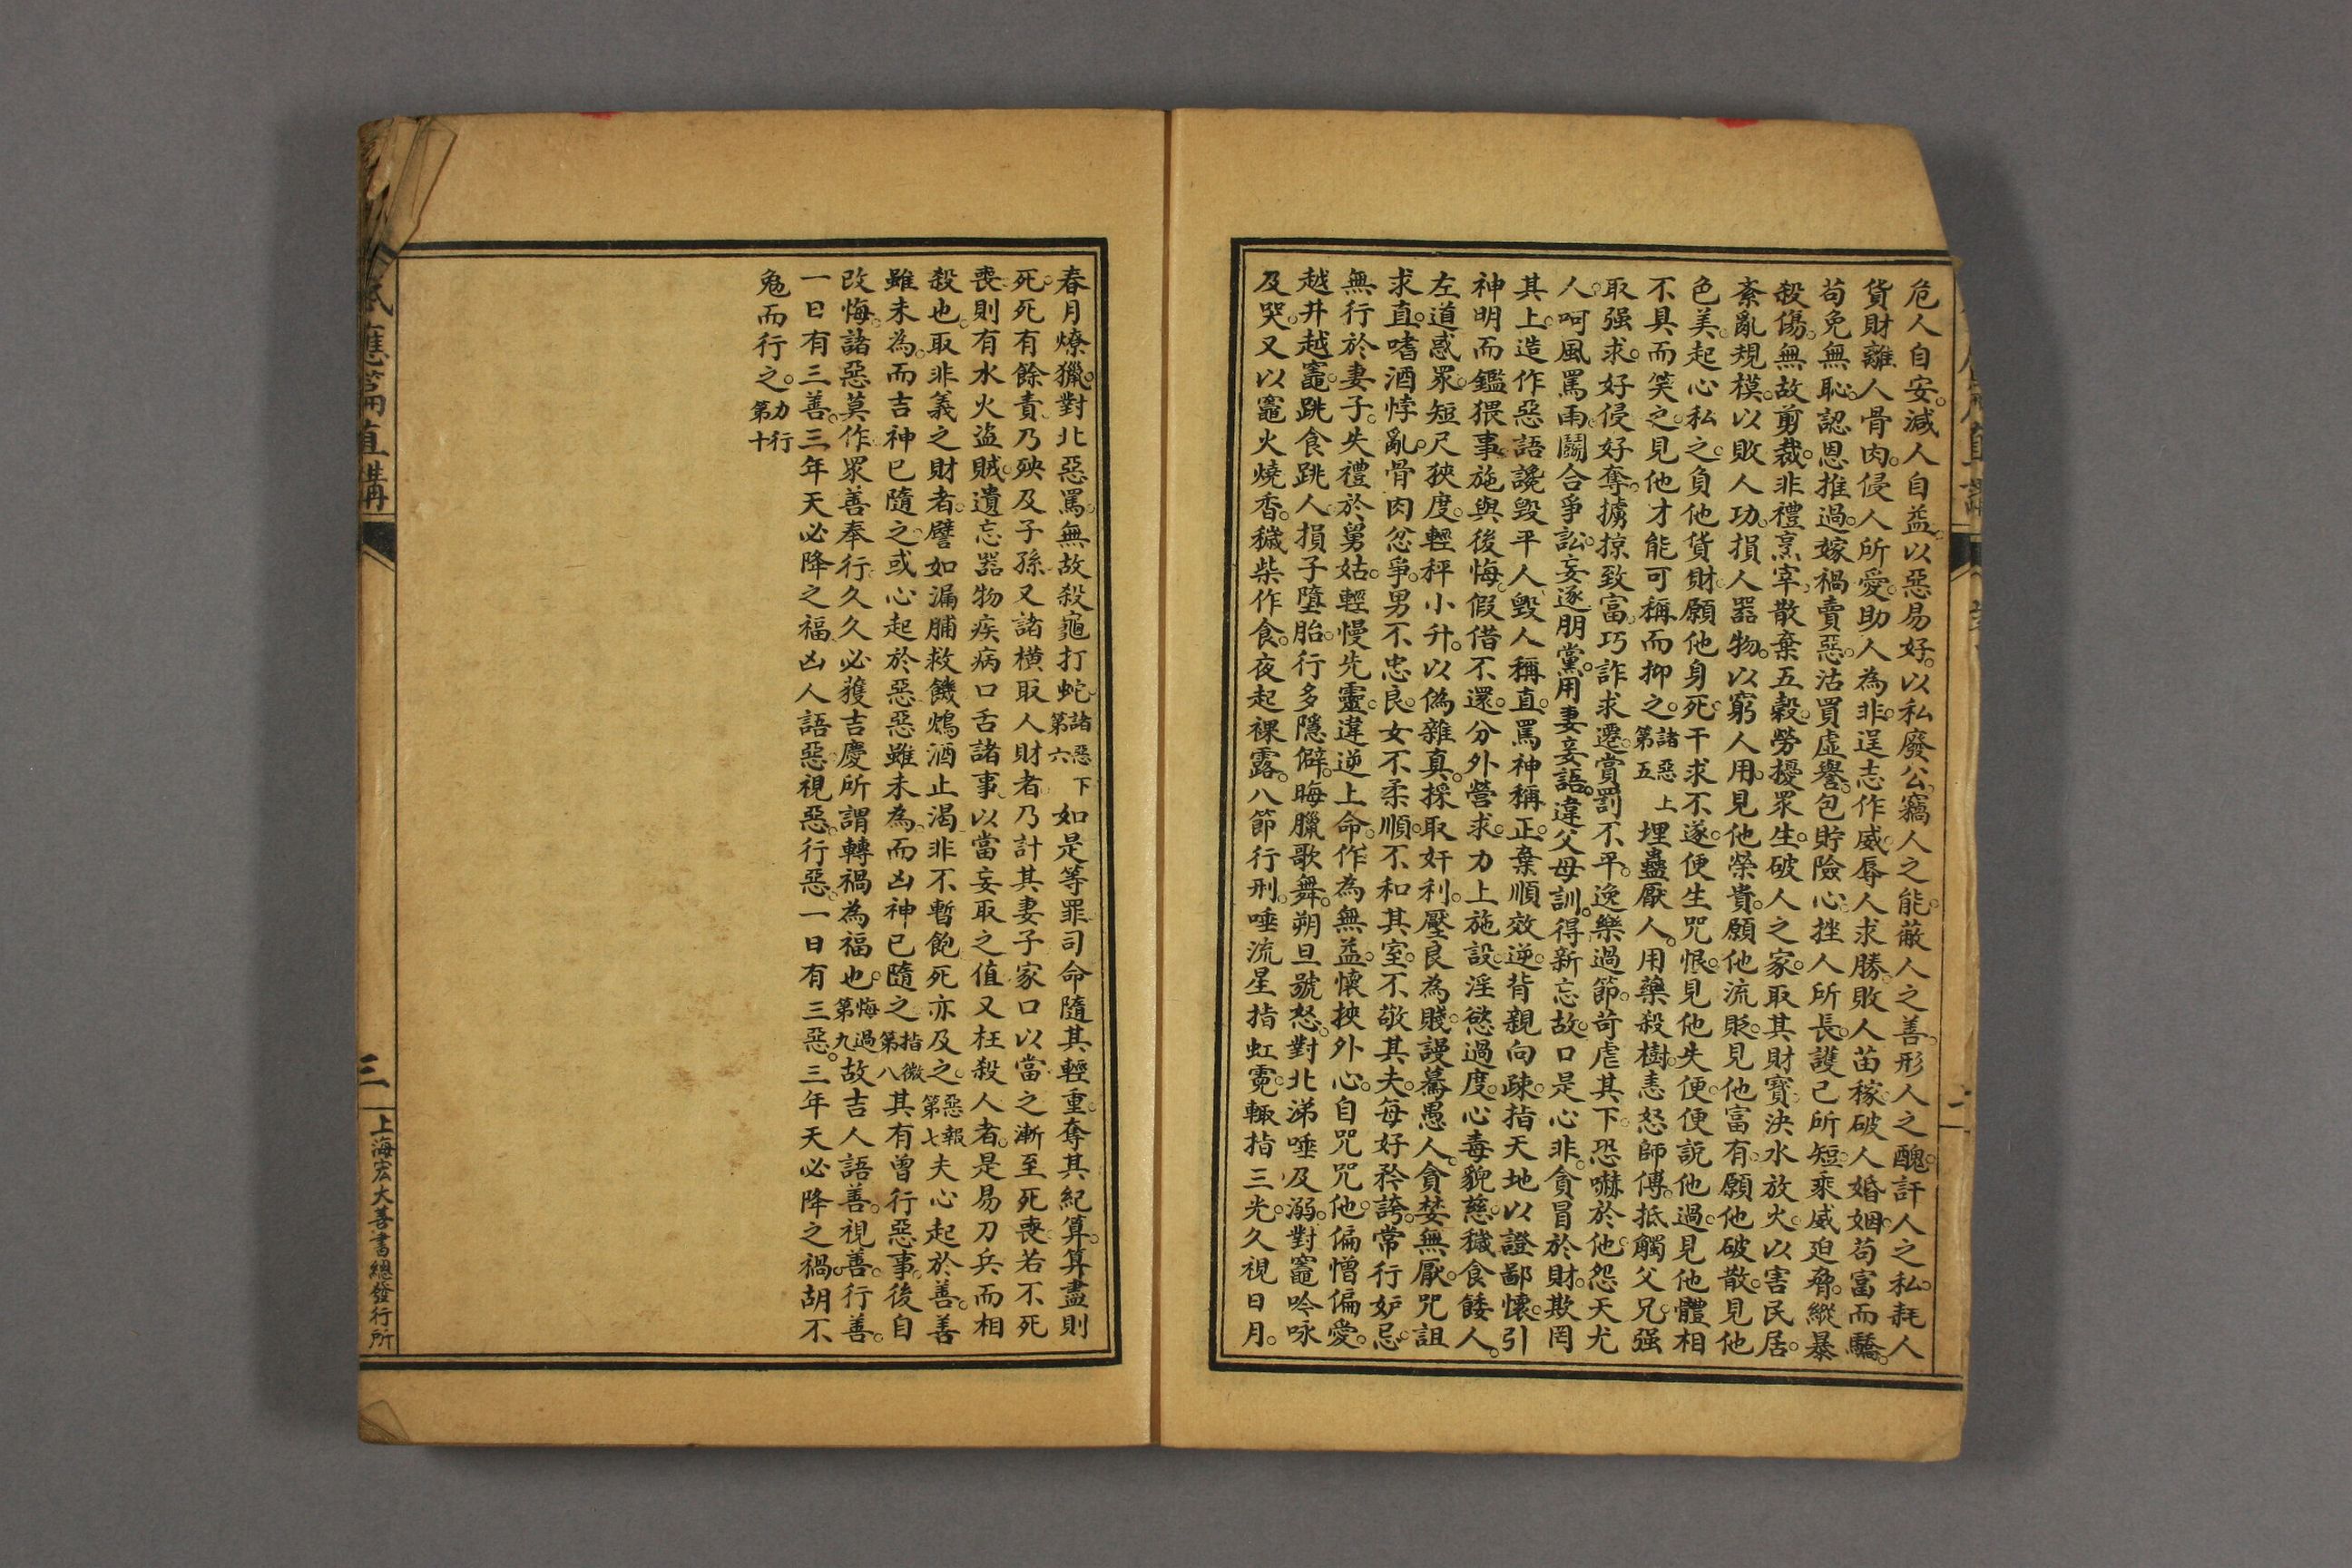 危人自安。減人自益。以惡易好。以私廢公。竊人之能。蔽人之善。形人之醜。訐人之私。耗人
貨財。離人骨肉。侵人所愛。助人為非。逞志作威。辱人求勝。敗人苗稼。破人婚姻。苟富而驕。
苟免無恥。認恩推過。嫁禍賣惡。沽買虛譽。包貯險心。挫人所長。護己所短。乘威迫脅。縱暴
殺傷。無故剪裁。非禮烹宰。散棄五穀。勞擾眾生。破人之家。取其財寶。決水放火。以害民居。
紊亂規模。以敗人功。損人器物。以窮人用。見他榮貴。願他流貶。見他富有。願他破散。見他
色美。起心私之。負他貨財。願他身死。干求不遂。便生咒恨。見他失便。便說他過。見他體相
不具而笑之。見他才能可稱而抑之。諸惡上第五埋蠱厭人。用藥殺樹。恚怒師傅。抵觸父兄。强
取强求。好侵好奪。擄掠致富。巧詐求遷。賞罰不平。逸樂過節。苛虐其下。恐嚇於他。怨天尤
人。呵風罵雨。鬭合爭訟。妄逐朋黨。用妻妾語。違父母訓。得新忘故。口是心非。貪冒於財。欺罔
其上。造作惡語。讒毀平人。毀人稱直。罵神稱正。棄順效逆。背親向疎。指天地以證鄙懷。引
神明而鑑猥事。施與後悔。假借不還。分外營求。力上施設。淫慾過度。心毒貌慈。穢食餧人。
左道惑眾。短尺狹度。輕秤小升。以偽雜真。採取奸利。壓良為賤。謾驀愚人。貪婪無厭。咒詛
求直。嗜酒悖亂。骨肉忿爭。男不忠良。女不柔順。不和其室。不敬其夫。每好矜誇。常行妒忌。
無行於妻子。失禮於舅姑。輕慢先靈。違逆上命。作為無益。懷挾外心。自咒咒他。偏憎偏愛。
越井越竈。跳食跳人。損子墮胎。行多隱僻。晦臘歌舞。朔旦號怒。對北涕唾及溺。對竈吟咏
及哭。又以竈火燒香。穢柴作食。夜起裸露。八節行刑。唾流星。指虹霓。輙指三光。久視日月。
二
春月燎獵。對北惡罵。無故殺龜打蛇。諸惡下第六如是等罪。司命隨其輕重。奪其紀算。算盡則
死。死有餘責。乃殃及子孫。又諸橫取人財者。乃計其妻子家口以當之。漸至死喪。若不死
喪。則有水火盜賊。遺忘器物。疾病口舌諸事。以當妄取之值。又枉殺人者。是易刀兵而相
殺也。取非義之財者。譬如漏脯救饑。鴆酒止渴。非不暫飽。死亦及之。惡報第七夫心起於善。善
雖未為。而吉神已隨之。或心起於惡。惡雖未為。而凶神已隨之。指微第八其有曾行惡事。後自
改悔。諸惡莫作。眾善奉行。久久必獲吉慶。所謂轉禍為福也。悔過第九故吉人語善。視善。行善。
一日有三善。三年天必降之福。凶人語惡。視惡。行惡。一日有三惡。三年天必降之禍。胡不
勉而行之。力行第十
應篇直講
三
上海宏大善書總發行所